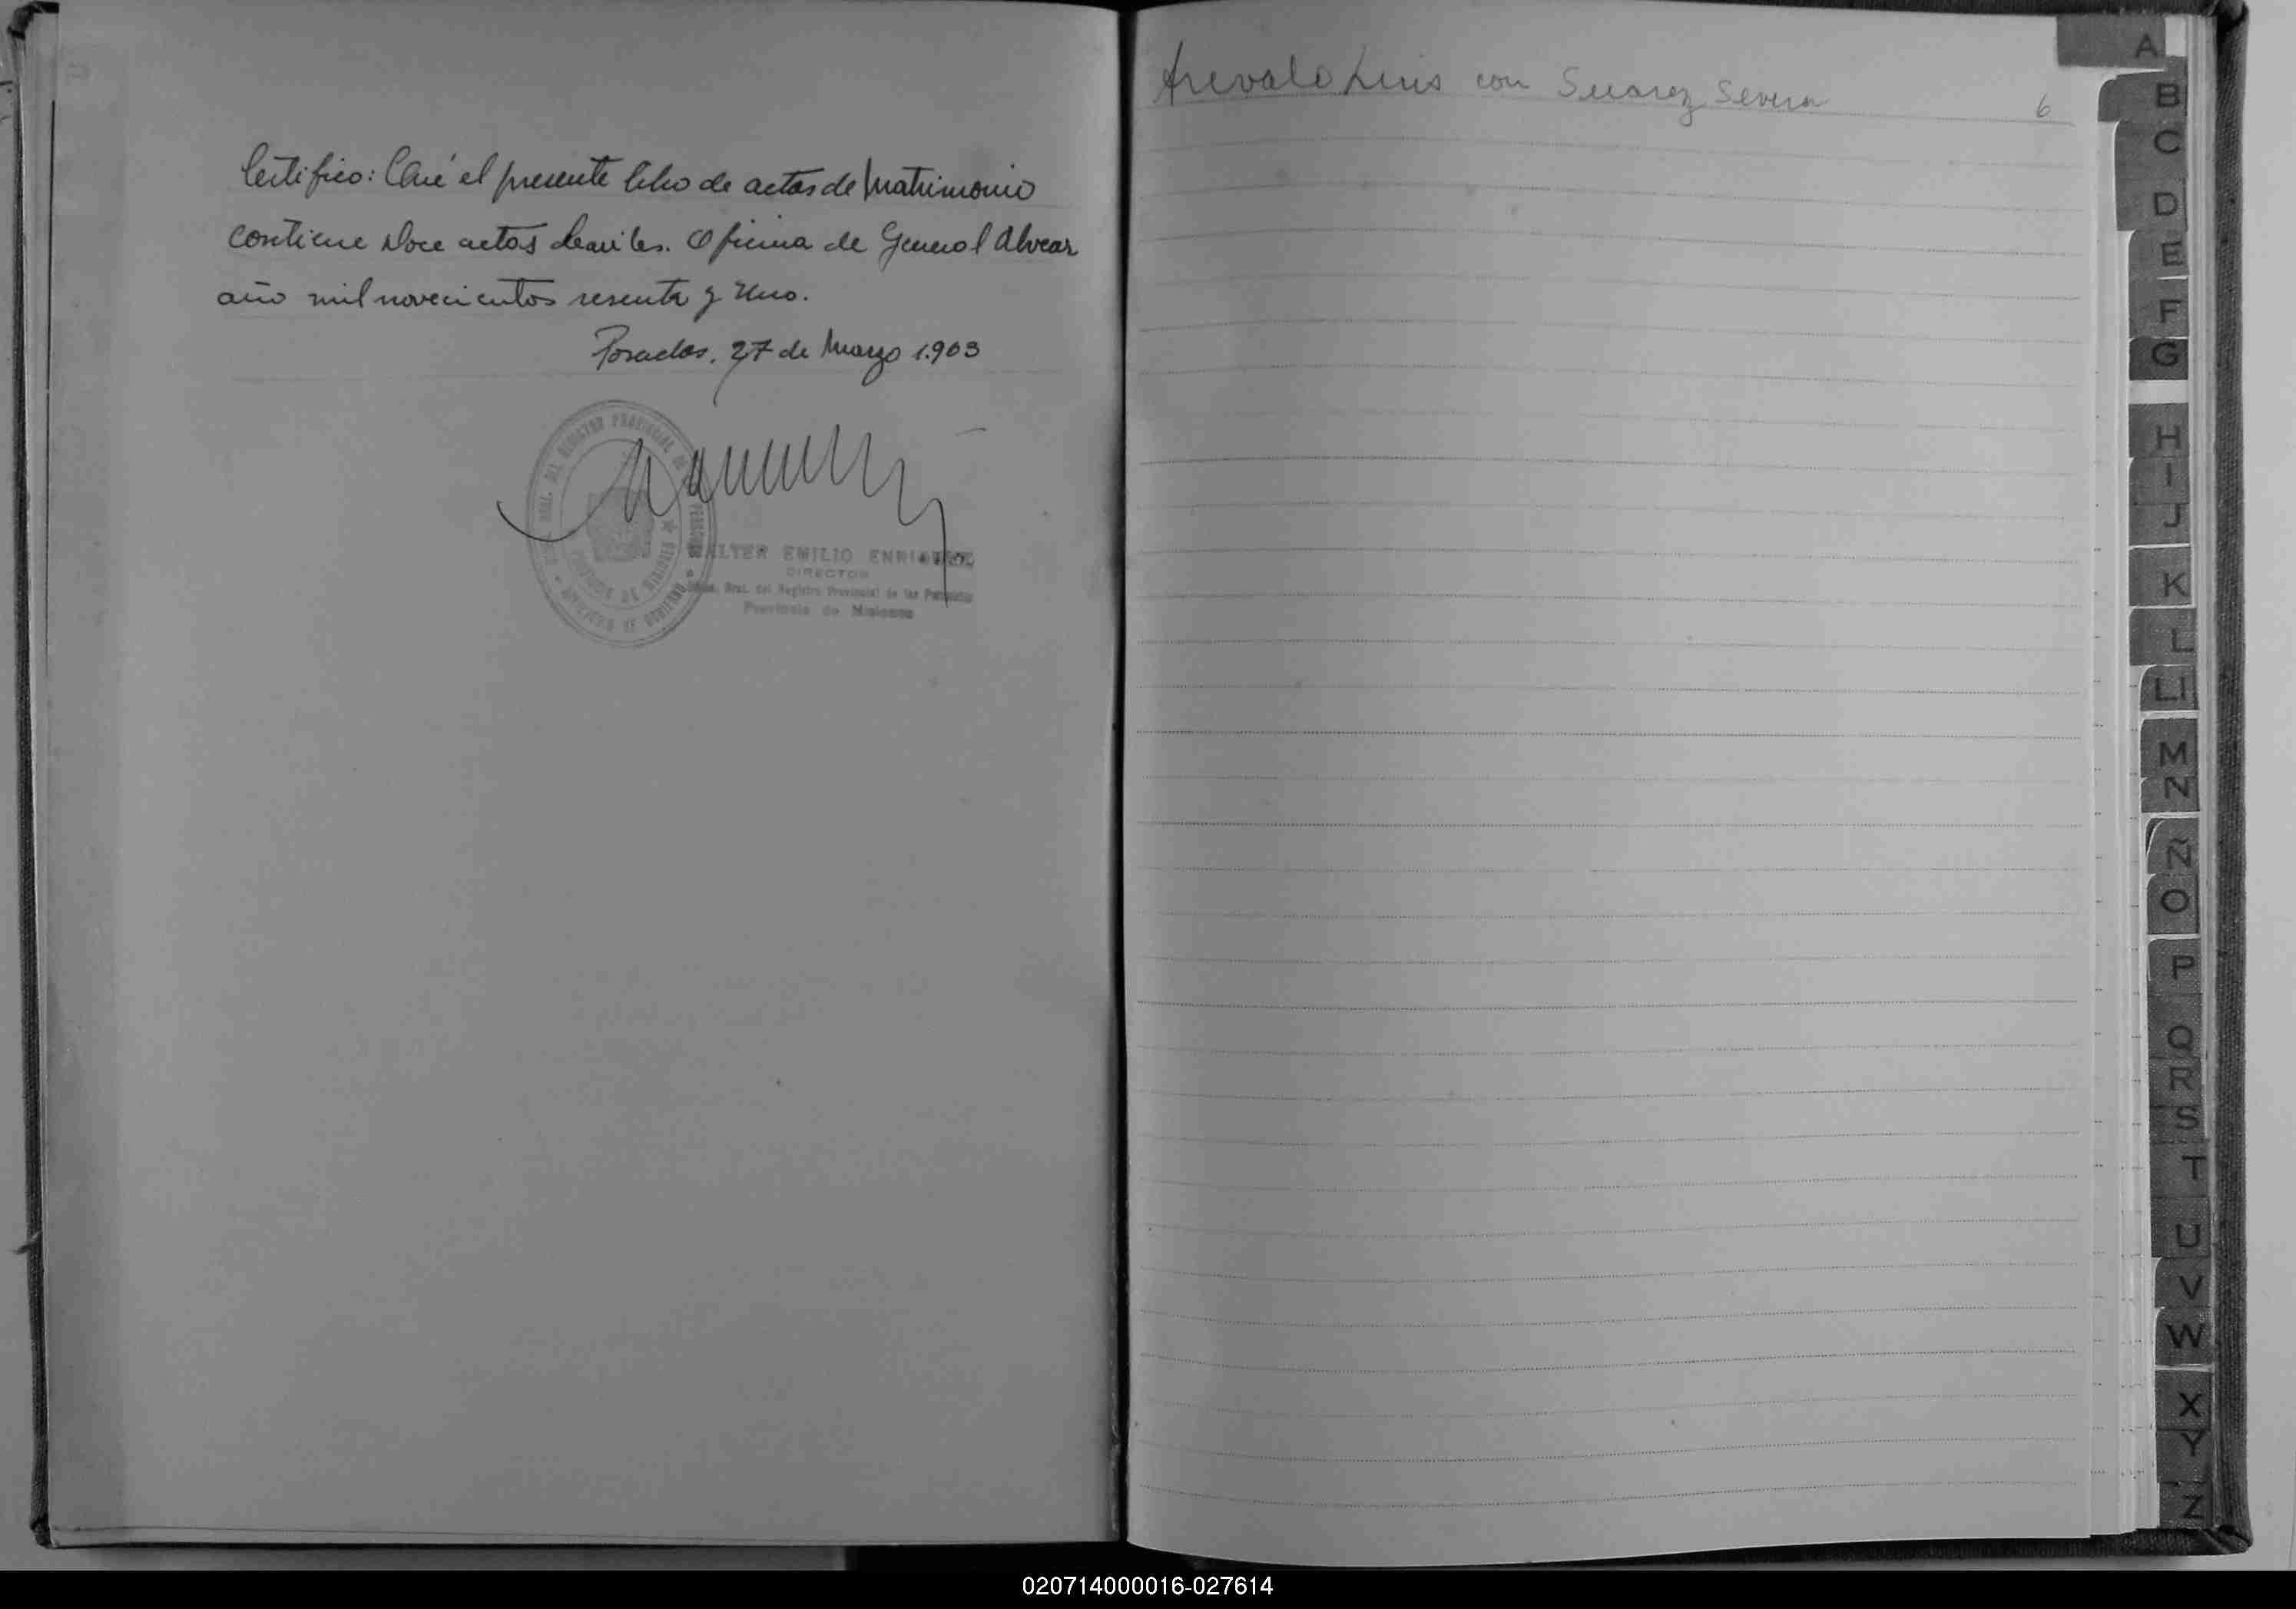 Certifico: Que el presente libro de actas de Matrimonio
contiene doce actas labradas. Oficina de General Alvear
año mil novecientos sesenta y Uno.
Posadas, 27 de Marzo 1.963
WALTER EMILIO ENRIQUEZ
DIRECTOR
Direc. Gral. del Registro Provincial de las Personas
Provincia de Misiones
Arevalo Luis con Suarez Severa 6
A
B
C
D
E
F
G
H
I
J
K
L
Ll
M
N
Ñ
O
P
Q
R
S
T
U
V
W
X
Y
Z
020714000016-027614